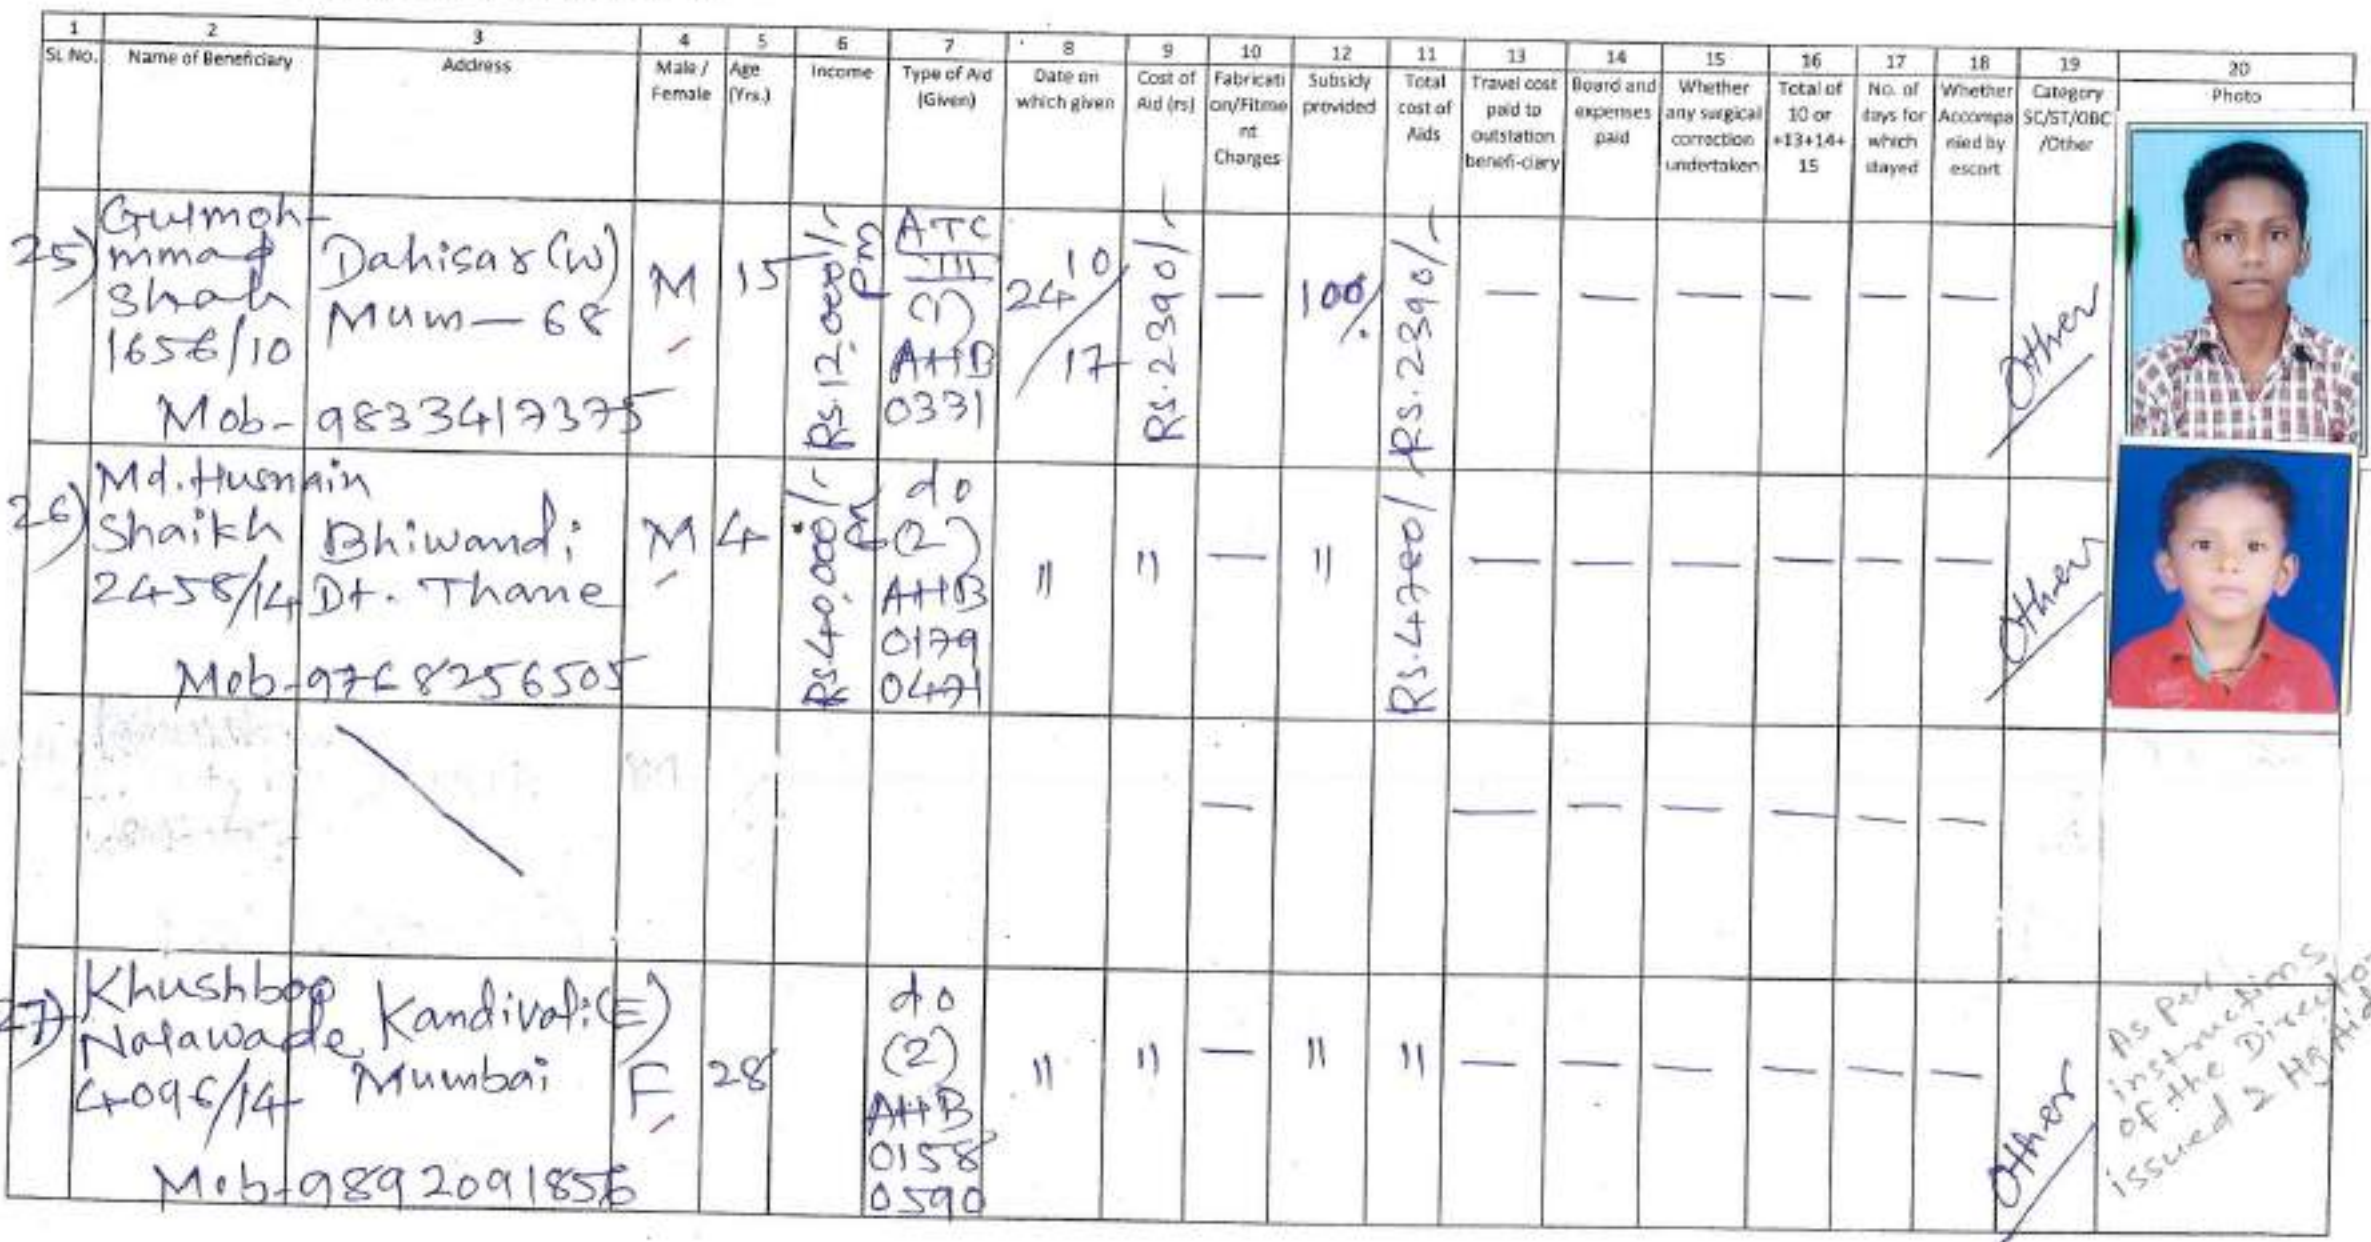 1 2 3 4 5 6 7 8 9 10 12 11 13 14 15 16 17 18 19 20
Sl. No. Name of Beneficiary Address Male / Female Age (Yrs.) Income Type of Aid (Given) Date on which given Cost of Aid (rs) Fabricati on/Fitme nt Charges Subsidy provided Total cost of Aids Travel cost paid to outstation benefi-ciary Board and expenses paid Whether any surgical correction undertaken Total of 10 or +13+14+ 15 No. of days for which stayed Whether Accompa nied by escort Category SC/ST/OBC /Other Photo
25)
Gulmoh-
mmad
Shah
1656/10
Dahisar (W)
Mum — 68
Mob - 9833417375
M
15
Rs. 12.000/- pm
ATC
III
(1)
AHB
0331
24 10/17
Rs. 2390/-
—
100%
Rs. 2390/-
— — — — — —
Other
26)
Md. Husnain
Shaikh
2458/14
Bhiwandi
Dt. Thane
Mob - 9768256505
M
4
Rs. 40.000/- pm
do
(2)
AHB
0179
0471
"
"
—
"
Rs. 4780/-
— — — — — —
Other
— — — — — — —
27)
Khushboo
Nalawade
4096/14
Kandivali (E)
Mumbai
Mob - 9892091856
F
28
do
(2)
AHB
0158
0590
"
"
—
"
"
— — — — — —
Other
As per
instructions
of the Director
issued 2 Hg Aid